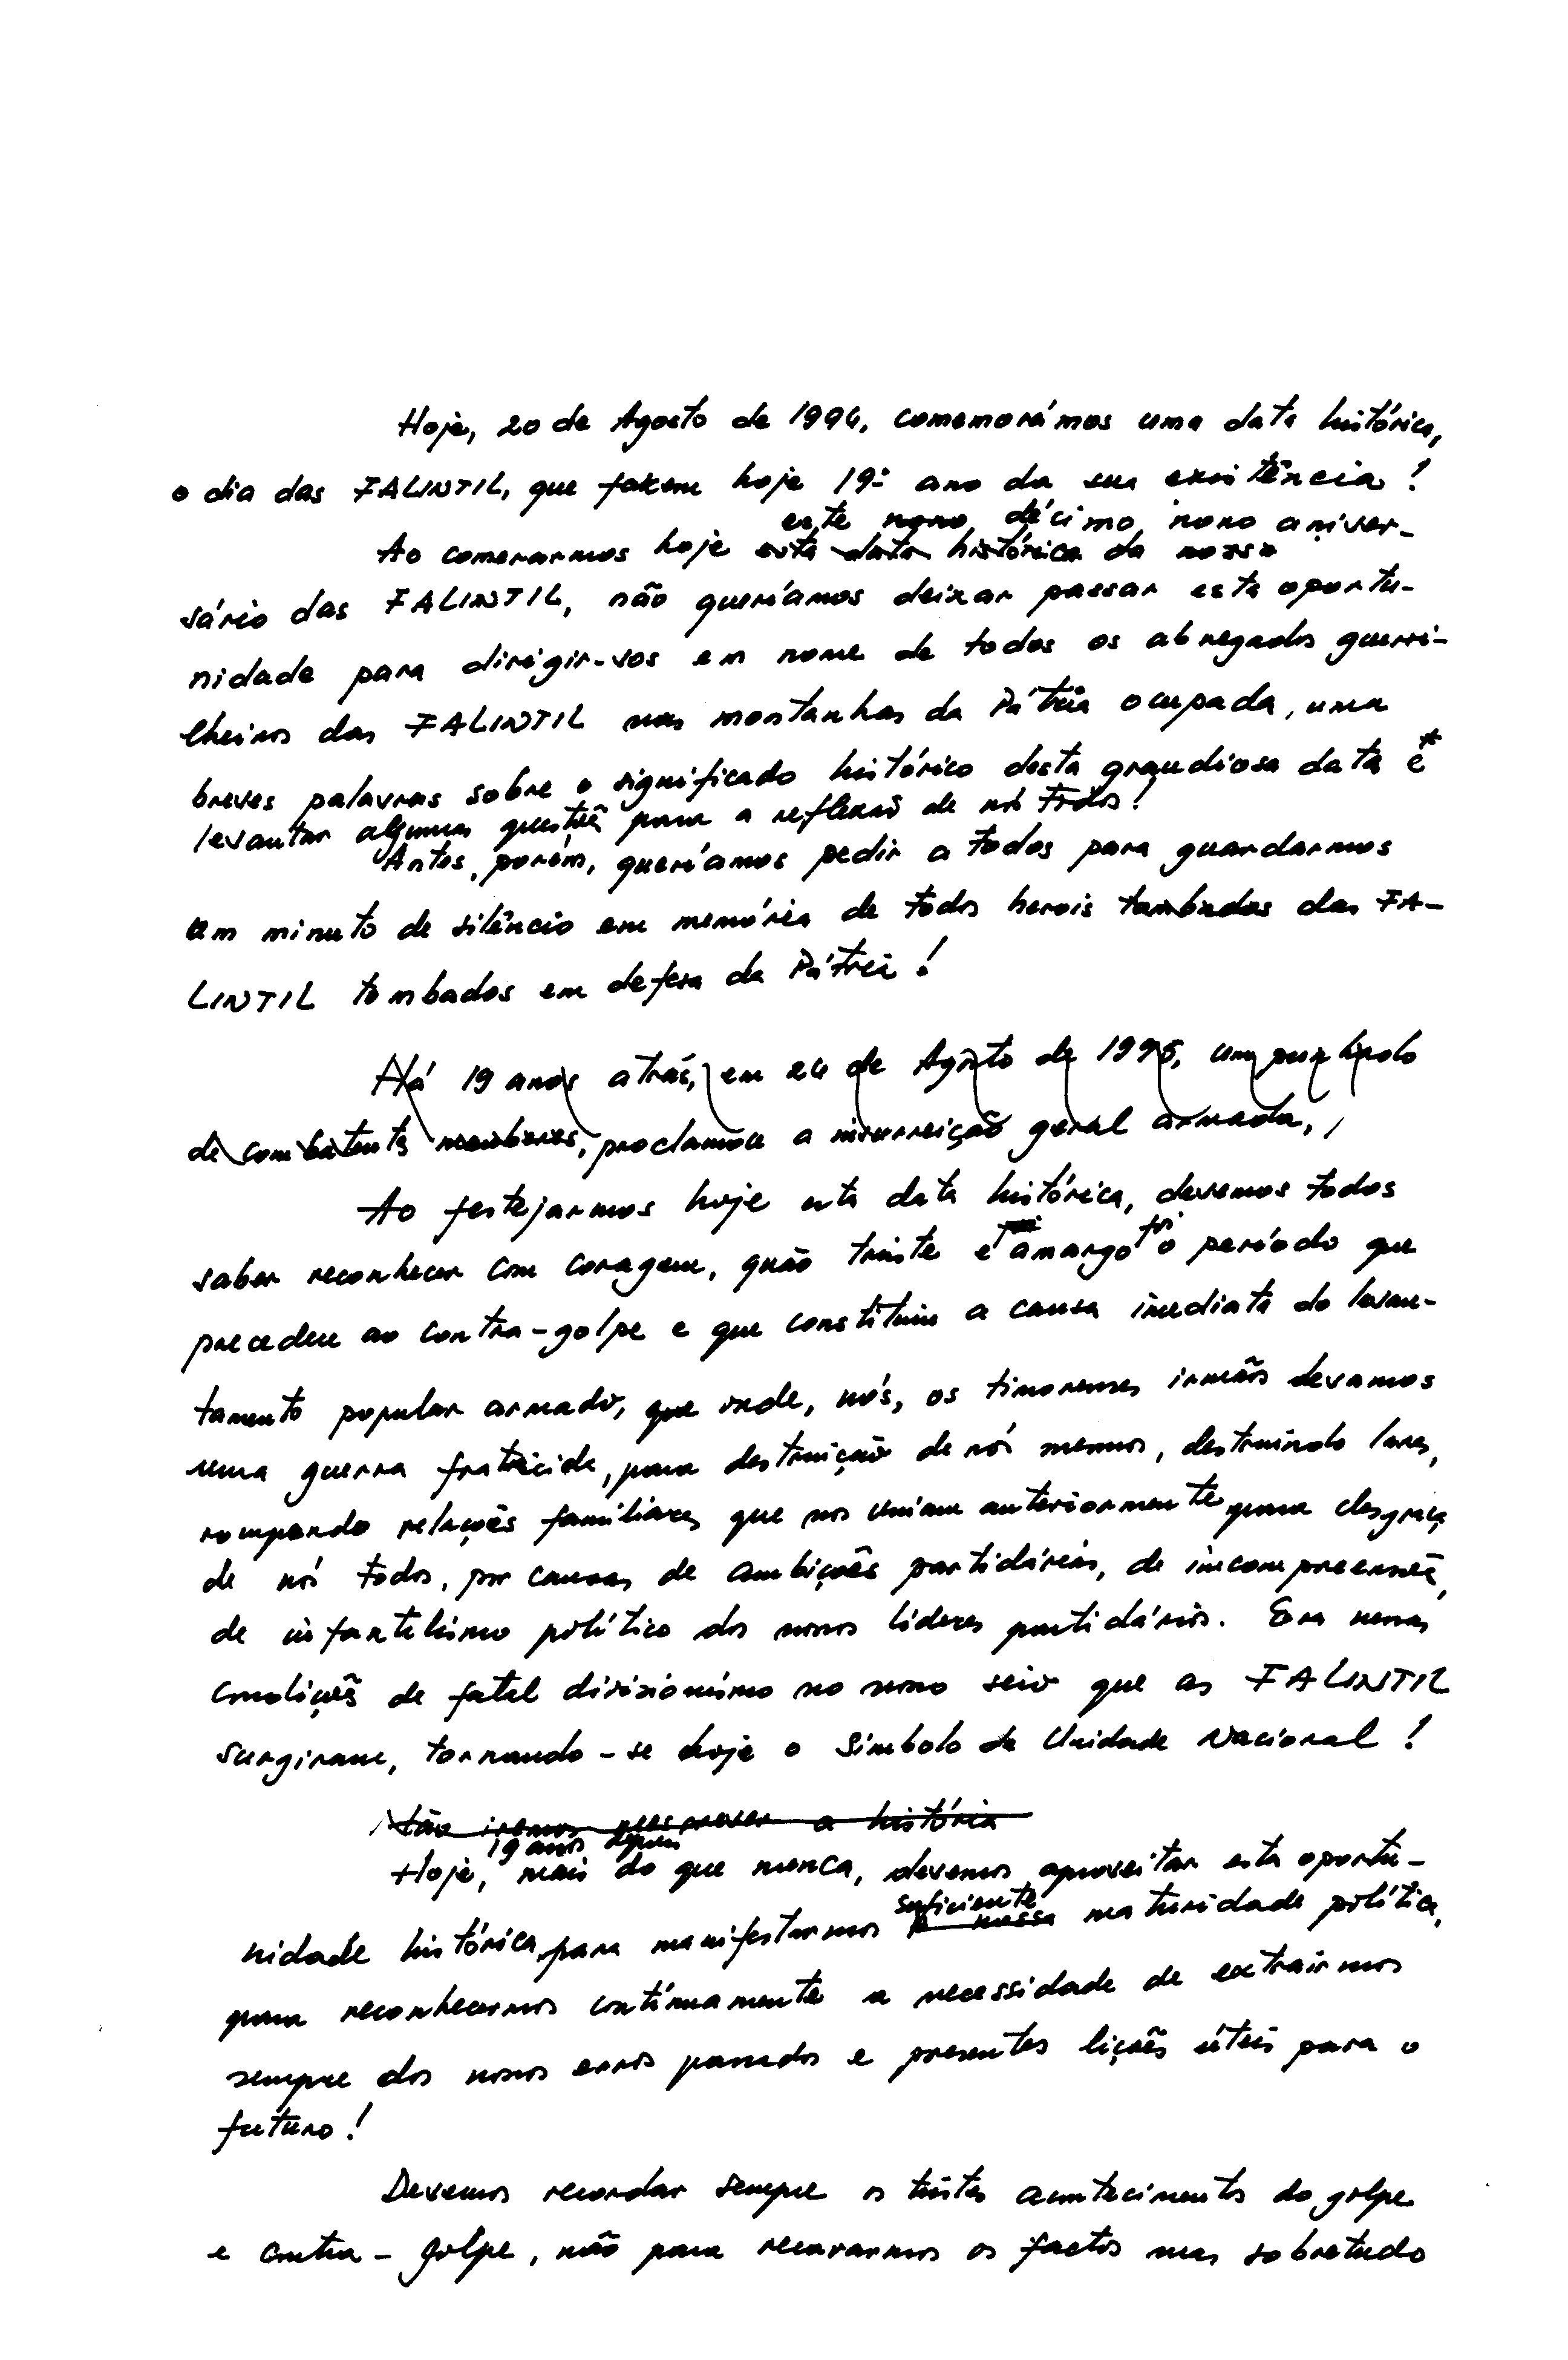 Hoje, 20 de Agosto de 1994, comemorámos uma data histórica,
o dia das FALINTIL, que fazem hoje 19º ano da sua existência!
este nono décimo nono aniver-
Ao comerarmos hoje esta data histórica da nossa
sário das FALINTIL, não queríamos deixar passar esta oportu-
nidade para dirigir-vos em nome de todos os abnegados guerri-
lheiros das FALINTIL nas montanhas da Pátria ocupada, uma
breves palavras sobre o significado histórico desta grandiosa data e
levantar algumas questões para a reflexão de nós todos!
Antes, porém, queríamos pedir a todos para guardarmos
um minuto de silêncio em memória de todos herois tombados das FA-
LINTIL tombados em defesa da Pátria!
Há 19 anos atrás, em 20 de Agosto de 1995, um punhado
de combatentes mauberes, proclamou a insurreição geral armada,
Ao festejarmos hoje esta data histórica, devemos todos
foi foi
saber reconhecer com coragem, quão triste e amargo o período que
precedeu ao contra-golpe e que constituiu a causa imediata do levan-
tamento popular armado, que onde, nós, os timorenses irmãos devamos
uma guerra fratricida, para destruição de nós mesmos, destruindo lares,
rompendo relações familiares que nos uniam anteriormente para desgraça
de nós todos, por causas de ambições partidárias, de incompreensões,
de infantilismo político dos nossos líderes partidários. Era nessas
condições de fatal divisionismo no nosso seio que as FALINTIL
surgiram, tornando-se hoje o Símbolo da Unidade Nacional!
Não iremos a história
19 anos depois
Hoje, mais do que nunca, devemos aproveitar esta oportu-
suficiente
nidade histórica para manifestarmos a nossa maturidade política,
para reconhecermos continuamente a necessidade de extrairmos
sempre dos nossos erros passados e presentes lições úteis para o
futuro!
Devemos recordar sempre os tristes acontecimentos do golpe
e contra-golpe, não para recusarmos os factos mas sobretudo